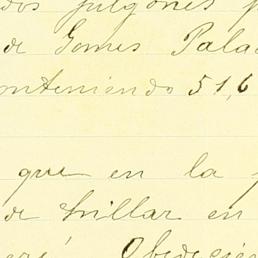 dos fulgones p
de Gomes Pala
onteniendo 51,6
que en la f
de trillar en
eré Obedecien